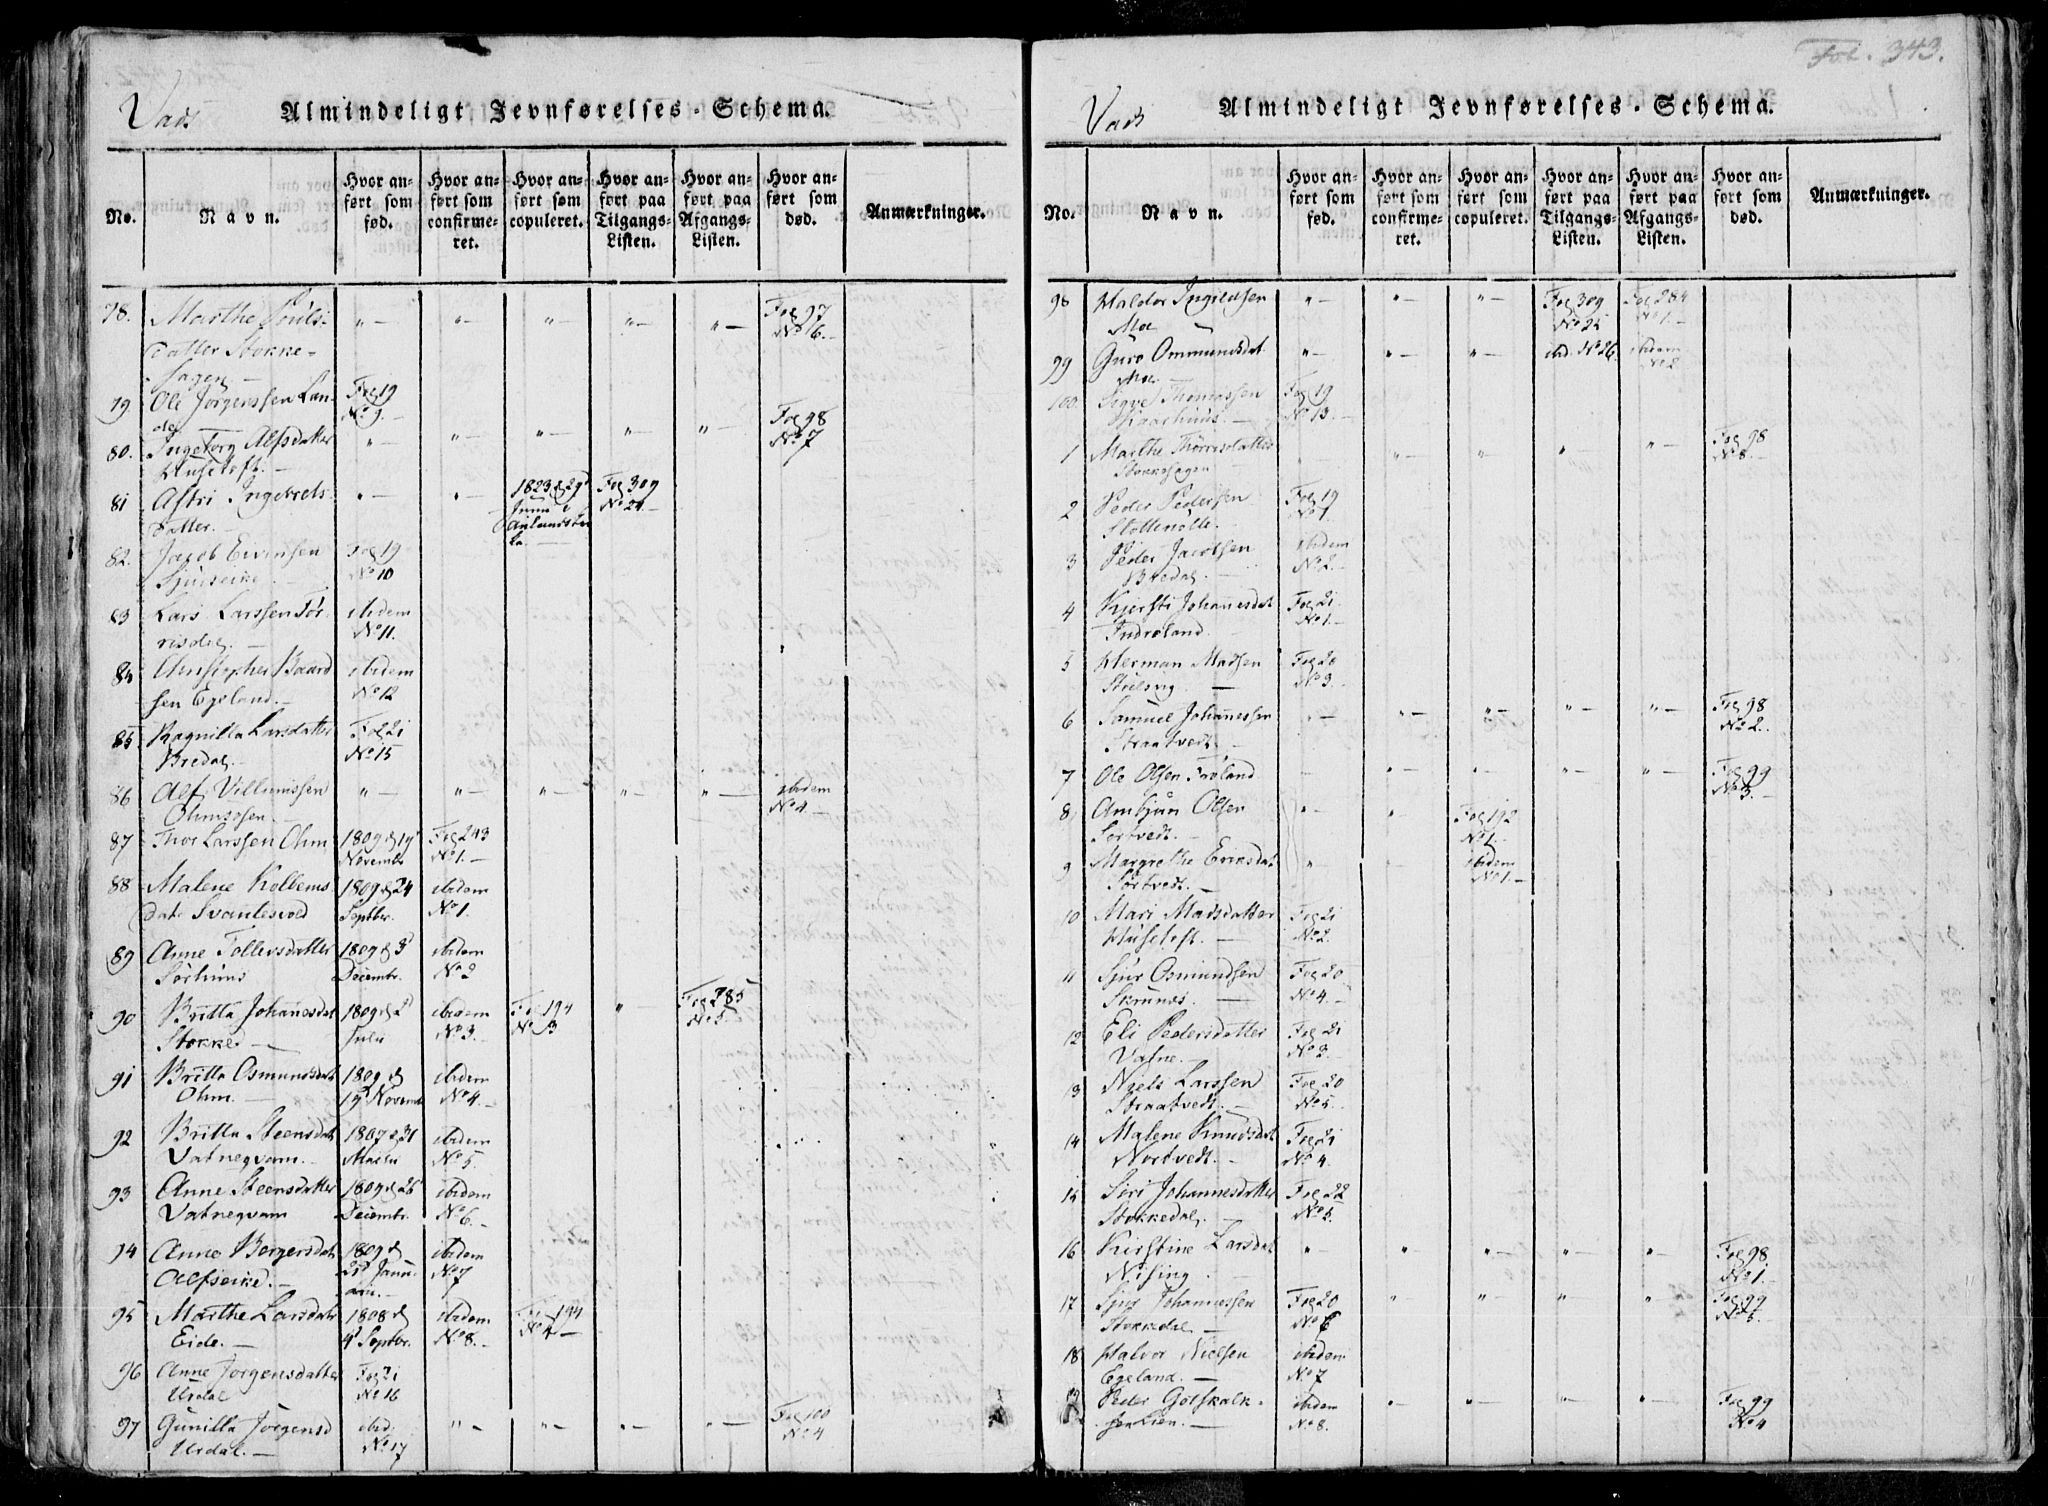 Vads Almindeligt Jevnførelses-Schema.
No. Navn. Hvor anført som fød. Hvor anført som confirmeret. Hvor anført som copuleret. Hvor anført paa Tilgangs-Listen. Hvor anført paa Afgangs-Listen. Hvor anført som død. Anmærkninger.
78. Marthe "— "— "— "— "— Fol 97
datter Stokke- No 6.
79. Ole Jørgenssen Lan- Fol 19
de No 9.—
80. Ingeborg Alfsdatter "— "— "— "— "— Fol 98
Huseloft.— No 7
81 Astri Ingebrets- "— "— 1823 d 29d Fol 309
datter.— Junii i No 24.—
82. Jacob Eivensen Fol 19
No 10
83 Lars Larssen Tør- ibidem
risdal.— No 11.
84 Christopher Baard ibidem
sen Egeland.— No 12
85 Ragnilla Larsdatter Fol 21
Bredal.— No 15
86 Alf Villumssen "— "— "— "— "— ibidem
Ohmsosen.— No 4.—
87 Thor Larssen Ohm 1809 d 19d Fol 243
November No 1.—
88 Malene Kolbens 1809 d 24 ibidem
datr Svantesvold Septbr. No 1.
89 Anne Tollevsdatter 1809 d 3d ibidem
Sørhuus Decembr. No 2
90 Britta Johanesdat 1809 d 2d ibidem Fol 194 "— Fol 285
Stokke — Julii No 3. No 3 No 5.
91 Britta Osmundsdat 1809 d ibidem
Ohm.— 19d Novemb No 4.—
92 Britta Steensdat 1807 d 31 ibidem
Vatneqvam.— Martii No 5.
93 Anne Steensdatter 1809 d 26 ibidem
Vatneqvam Decembr. No 6.—
94 Anne Bergersdat 1809 d ibidem
Alfseike.— 21d Janu- No 7
arii.—
95 Marthe Larsdatr 1808 d ibidem Fol 194
Eide.— 4d Septbr. No 8.— No 4—
96 Anne Jørgensdatter Fol 21
Urdal No 16
97 Gunilla Jørgensd ibid. "— "— "— "— Fol 100
Urdal.— No 17 No 4
Fol. 343.
Vads Almindeligt Jevnførelses-Schema.
No. Navn. Hvor anført som fød. Hvor anført som confirmeret. Hvor anført som copuleret. Hvor anført paa Tilgangs-Listen. Hvor anført paa Afgangs-Listen. Hvor anført som død. Anmærkninger.
98 Haldor Ingildsen "— "— "— Fol 309 Fol 284
Moe No 25 No 1.—
99 Guro Ommundsdat "— "— "— ibid. No 26. ibidem
Moe No 2
100. Thomassen Fol 19
No 13.—
1 Marthe Thorrisdatter "— "— "— "— Fol 98
No 8.—
2 Peder Pedersen Fol 19
No 1.
3 Peder Jacobsen ibidem
Bredal.— No 2.—
4 Kjersti Johanesdat Fol 21
Indreland. No 1.—
5 Herman Madsen Fol 20
No 3.
6 Samuel Johannessen "— "— "— "— "— Fol 98
Straatvedt.— No 2.
7 Ole Olsen Frøland — "— "— "— "— Fol 99
No 3.—
8 Ambjørn Olsen "— "— Fol 192
Sørtvedt.— No 1.—
9 Margrethe Eriksdat "— ibidem
Sørtvedt.— No 1.—
10 Mari Madsdatter Fol 21
Huseloft.— No 2.
11 Sjur Osmundsen Fol 20
No 4.—
12 Eli Pedersdatter Fol 21
Vatne.— No 3.
13 Niels Larssen Fol 20
Straatvedt.— No 5.
14 Malene Knudsdat Fol 21
Nortvedt.— No 4.
15 Siri Johannesdatter Fol 22
Stokkedal.— No 5.
16 Kirstine Larsdat "— "— "— "— "— Fol 98.
Nising.— No 1.
17 Sjur Johannessen Fol 20 "— "— "— "— Fol 99
Stokkedal.— No 6
18 Halvor Nielsen ibidem
Egeland.— No 7
19 Peder Gotskalk- ibidem "— "— "— "— Fol 99
sen Lien.— No 8. No 4